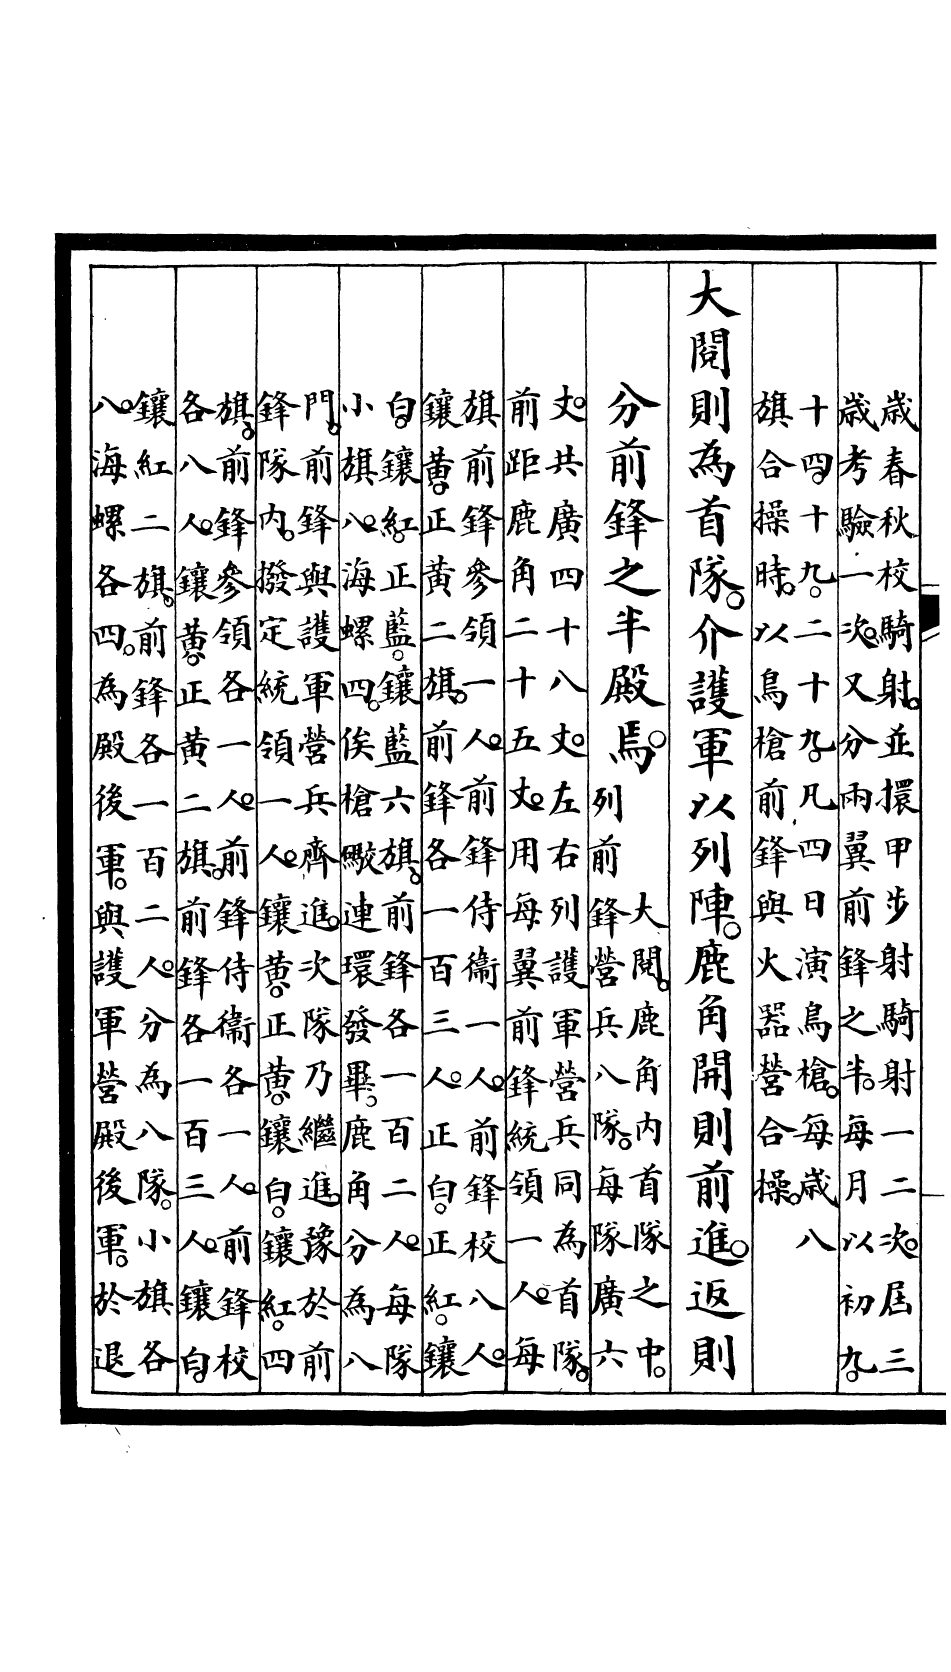 歲春秋校騎射。並擐甲步射騎射一二次。屆三
歲考驗一次。又分兩翼前鋒之半。每月以初九。
十四。十九。二十九。凡四日演鳥槍。每歲八
旗合操時。以鳥槍前鋒與火器營合操。
大閱則為首隊。介護軍以列陣。鹿角開則前進。返則
分前鋒之半殿焉。
大閱。鹿角內首隊之中。
列前鋒營兵八隊。每隊廣六
丈。共廣四十八丈。左右列護軍營兵同為首隊。
前距鹿角二十五丈。用每翼前鋒統領一人。每
旗前鋒參領一人。前鋒侍衞一人。前鋒校八人。
鑲黃。正黃二旗。前鋒各一百三人。正白。正紅。鑲
白。鑲紅。正藍。鑲藍六旗。前鋒各一百二人。每隊
小旗八。海螺四。俟槍礮連環發畢。鹿角分為八
門。前鋒與護軍營兵齊進。次隊乃繼進。豫於前
鋒隊內。撥定統領一人。鑲黃。正黃。鑲白。鑲紅。四
旗。前鋒參領各一人。前鋒侍衞各一人。前鋒校
各八人。鑲黃。正黃二旗。前鋒各一百三人。鑲白。
鑲紅二旗。前鋒各一百二人。分為八隊。小旗各
八。海螺各四。為殿後軍。與護軍營殿後軍。於退